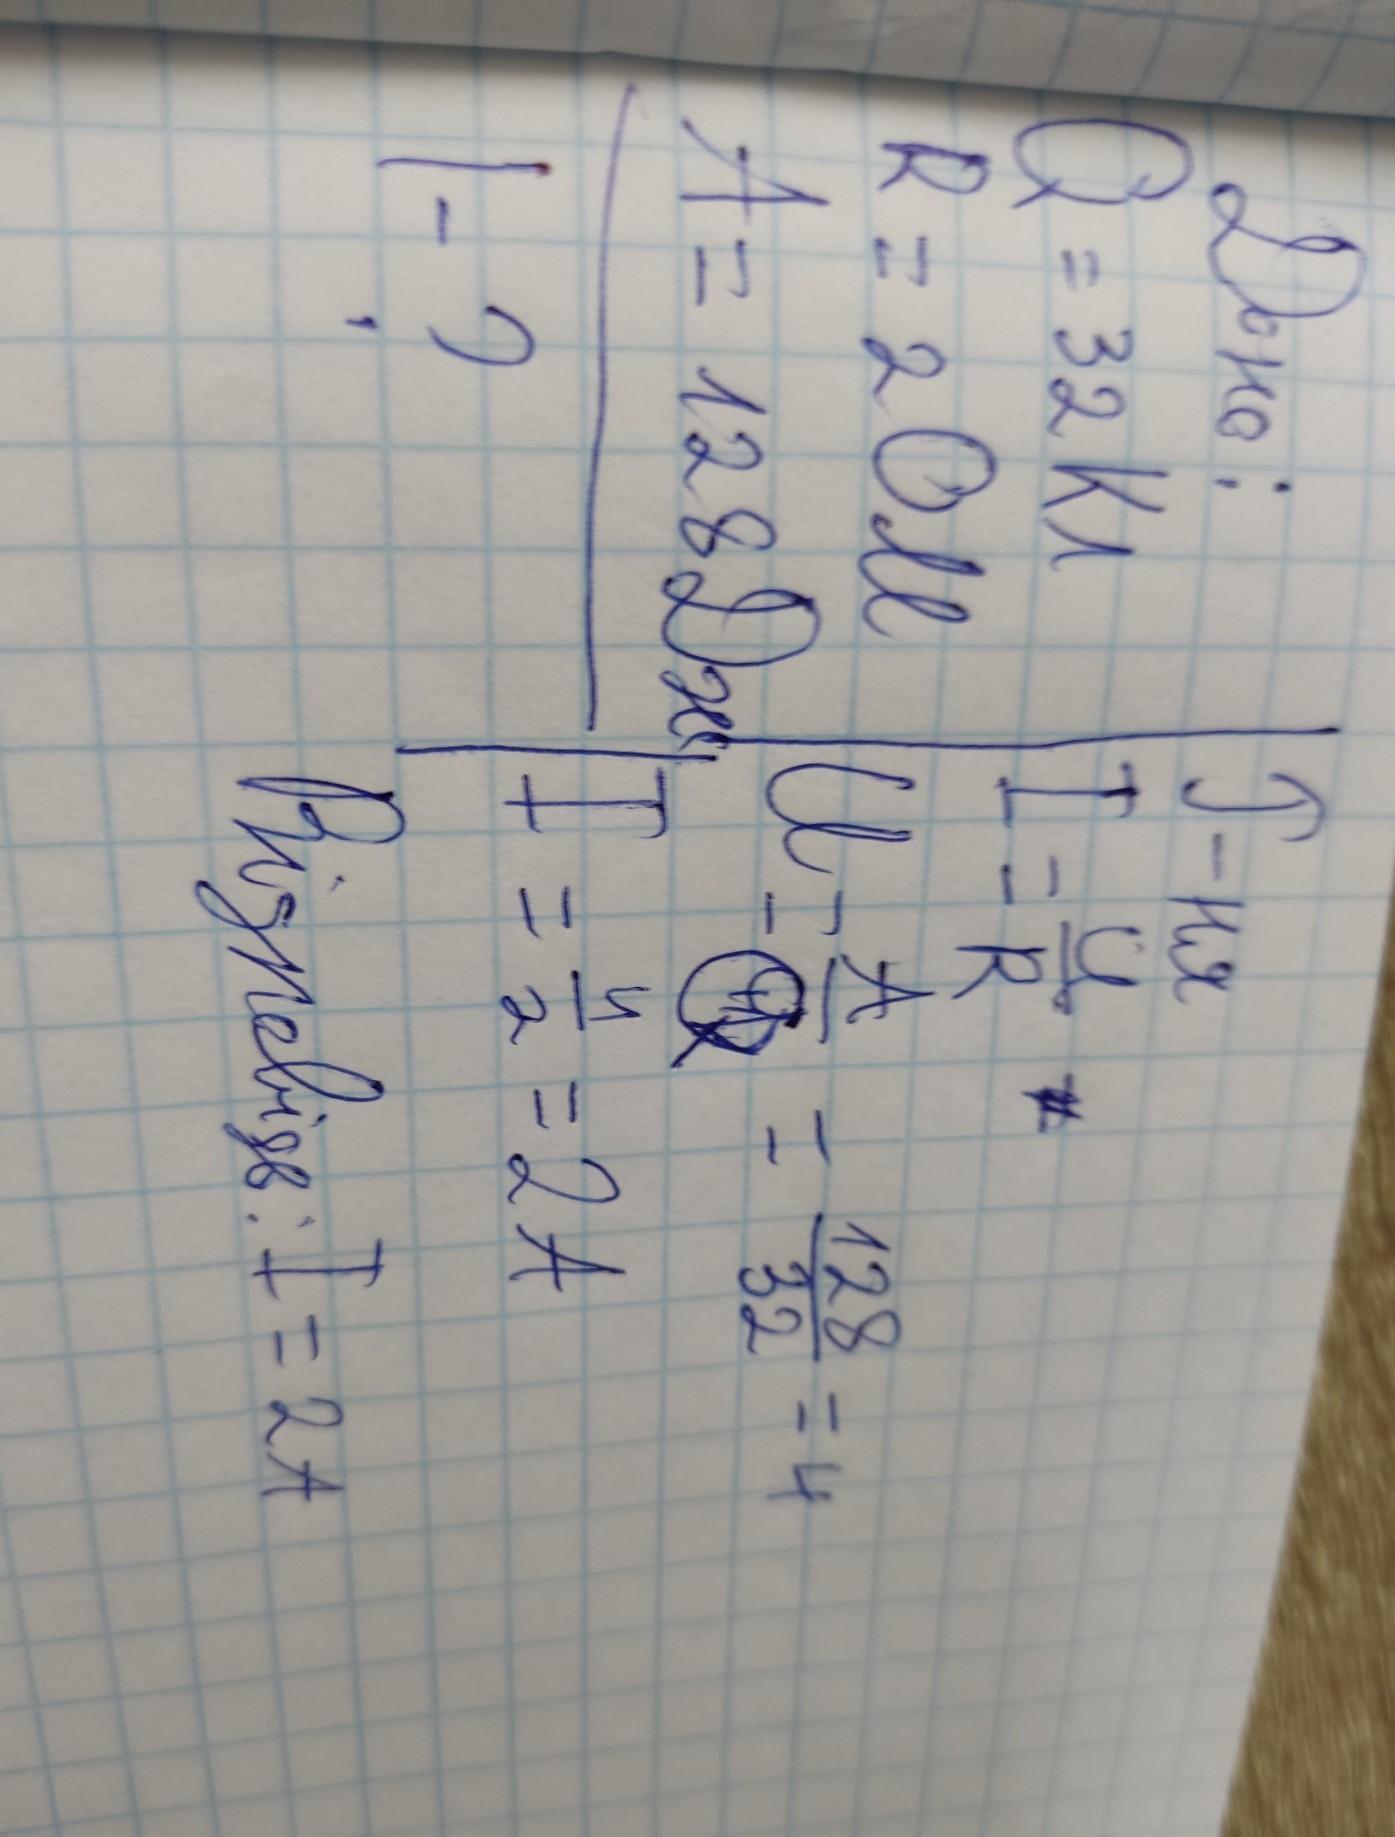 Дано:
Q = 32 Кл
R = 2 Ом
A = 128 Дж
I - ?
Р-ня
I = U/R
U = A/Q = 128/32 = 4
I = 4/2 = 2 А
Відповідь: I = 2А